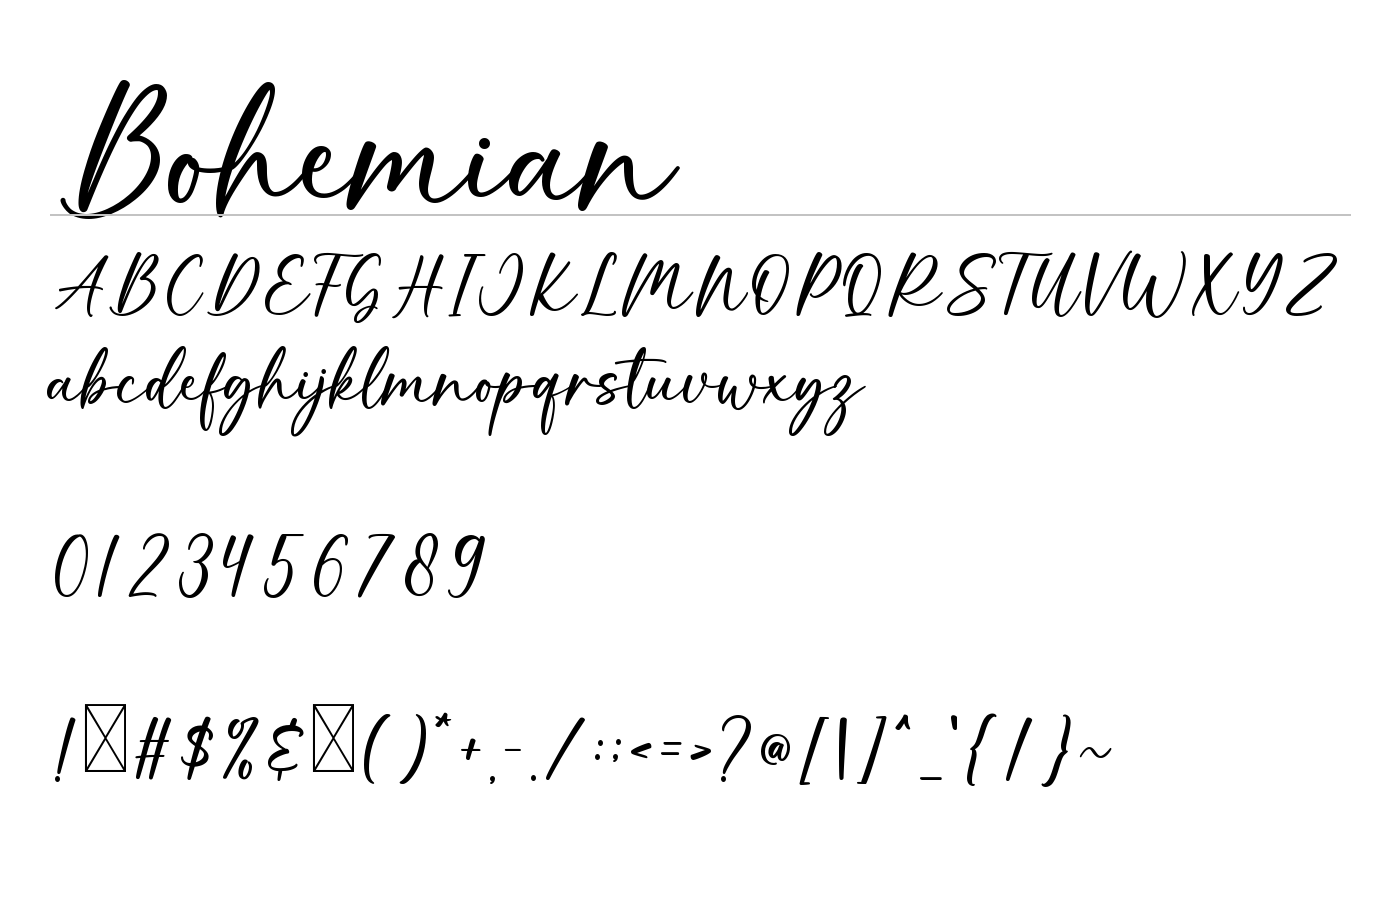 Bohemian
ABCDEFGHIJKLMNOPQRSTUVWXYZ
abcdefghijklmnopqrstuvwxyz
0123456789
!#$%&()*+,-./:;<=>?@[\]^_`{|}~